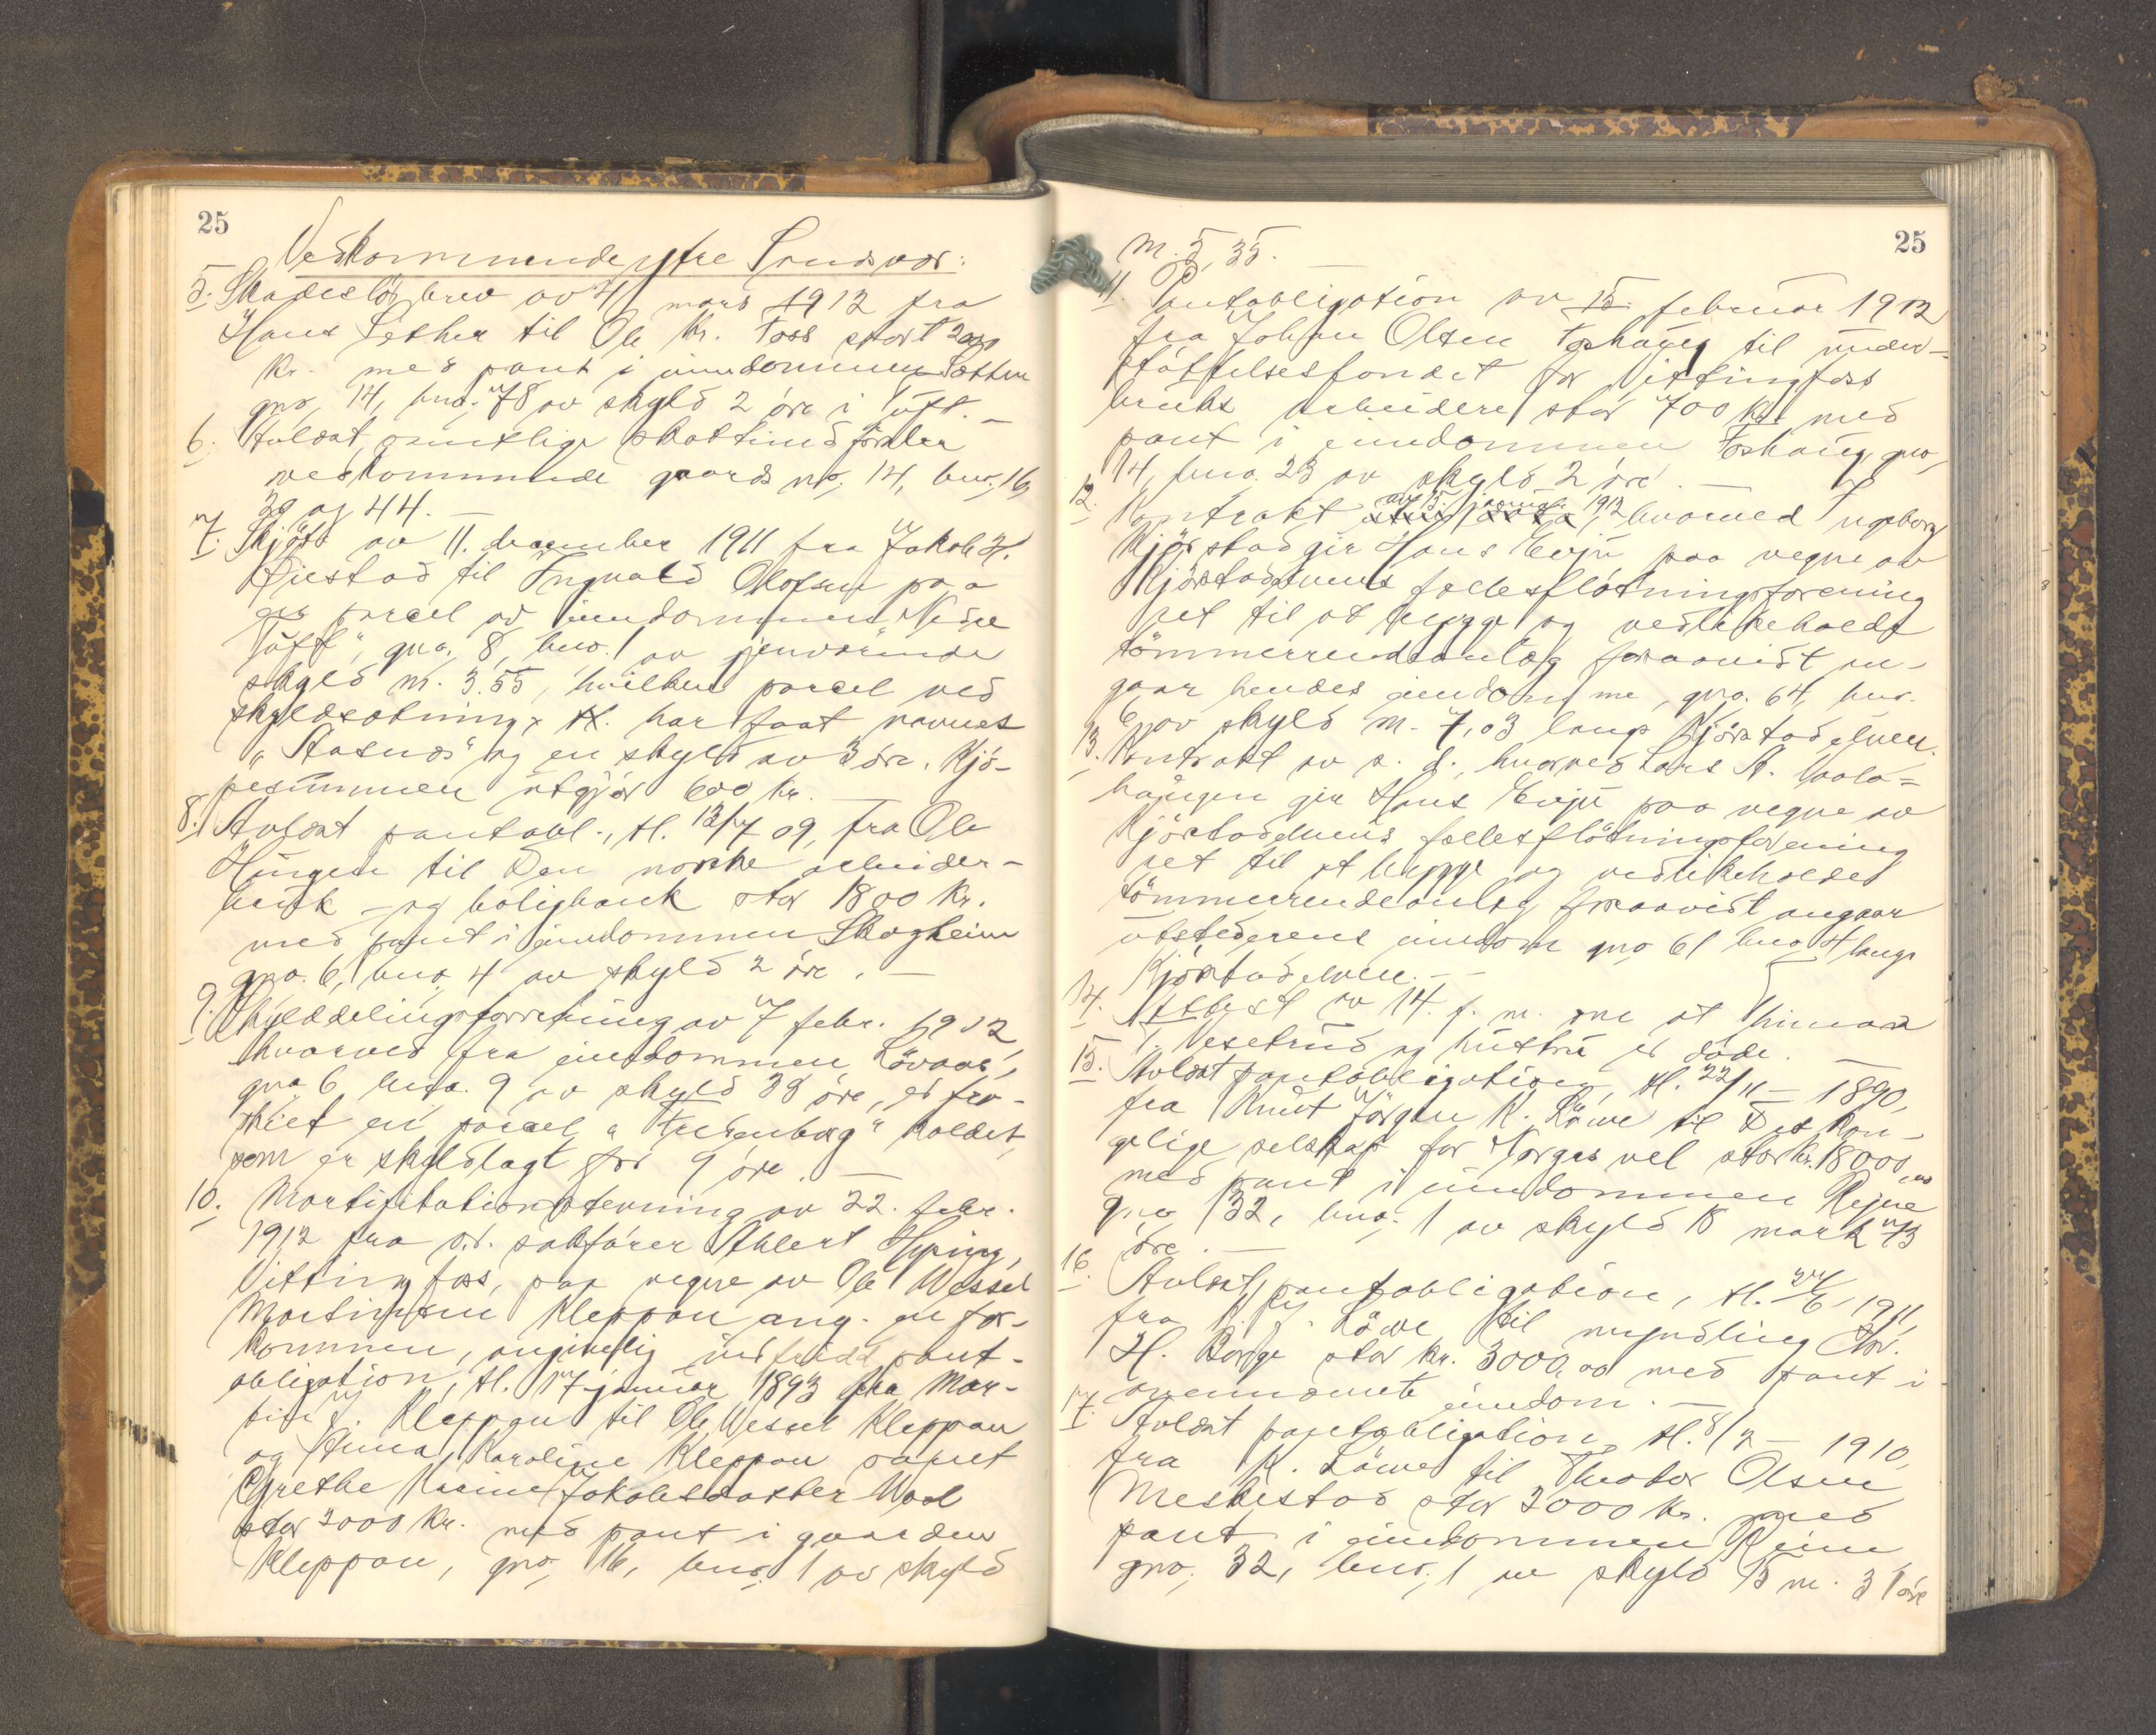 25
Vedkommende ytre Sandsvær:
5. Skadeslösbrev av 4 mars 1912 fra
Hans Sether til Ole Kr. Foss stort 2000
kr. med pant i eiendommen Sættra
gno, 14, bno. 78 av skyld 2 öre i
6. Avlæst samtlige skattindförsler
vedkommende gaards no, 14, bno, 16,
39 og 44. —
7. Skjöte av 11. december 1911 fra Jakob H.
til Ingvald Olofsen paa
parcel av eiendommen Nedre
gno, 8, bno. 1 av jenværende
skyld m. 3.55, hvilken parcel ved
skyldsætning, tl. har faat navnet
og en skyld av 3 öre. Kjö-
pesummen utgjör 600 kr. —
8. Avlæst pantobl., tl. 13/7 09, fra Ole
Hungen til Den norske arbeider-
bruk - og boligbank stor 1800 Kr.
med pant i eiendommen Skogheim
gno. 6, bno. 4 av skyld 2 öre. —
9. Skylddelingsforretning av 7 febr. 1912,
hvorved fra eiendommen Lövaas,
gno 6, bno. 9 av skyld 38 öre, er fra-
skilt en parcel " kaldet,
som er skyldlagt for 9 öre. —
10. Mortifikationsstevning av 22. febr.
1912 fra o.r. sakförer Ahlert Hysing,
Vittingfoss, paa vegne av Ole Wessel
Martinsen Kleppan ang. en for-
kommen, angivelig indfridd pant-
obligation, tl. 17 januar 1893 fra Mar-
tin J. Kleppan til Ole Wessel Kleppan
og Anna Karoline Kleppan samt
Grethe Karine Jakobsdatter Moel
stor 2000 Kr. med pant i gaarden
Kleppan, gno, 16, bno. 1 av skyld
25
m. 5,35.
11. Pantobligation av 15. februar 1912
fra Johan Olsen Foshaug til under-
støttelsesfondet for Vittingfoss
bruks arbeidere stor 700 kr. med
pant i eiendommen Foshaug, gno,
14, bno. 23 av skyld 2 öre. —
12. Kontrakt av 15. januar 1912, hvorved Ingeborg
Kjörstad gir Hans Evju paa vegne av
Kjörstadelvens fællesflötningsforening
ret til at bygge og vedlikeholde
tömmerrendeanlæg forsavidt an-
gaar hendes eiendomme, gno. 64, bno.
6, av skyld m. 7,03 langs Kjörstadelven.
13. Kontrakt av s. d., hvorved Lars A.
haugen gir Hans Evju paa vegne av
Kjörstadelvens fællesflötningsforening
ret til at bygge og vedlikeholde
tömmerrendeanlæg forsaavidt angaar
utstederens eiendom gno 61 bno 4 langs
Kjörstadelven. —
14. Attest av 14. f. m. om at
J. Vesetrud og hustru er döde. —
15. Avlæst pantobligation, tl. 22/11 — 1890,
fra Knut Jörgen K. Löwe til Det kon-
gelige selskap for Norges vel stor kr. 18000,00
med pant i eiendommen Rejne
gno 32, bno. 1 av skyld 18 mark 73
öre. —
16. Avlæst pantobligation, tl. 1911,
fra K. J. Löwe til myndling Chr.
H. Borge stor kr. 3000,00 med pant i
ovennævnte eiendom. —
17. Avlæst pantobligation, tl. 1910,
fra K. Löwe til Theodor Olsen
stor 2000 kr. med
pant i eiendommen Reine
gno, 32, bno, 1 av skyld 15 m. 31 öre